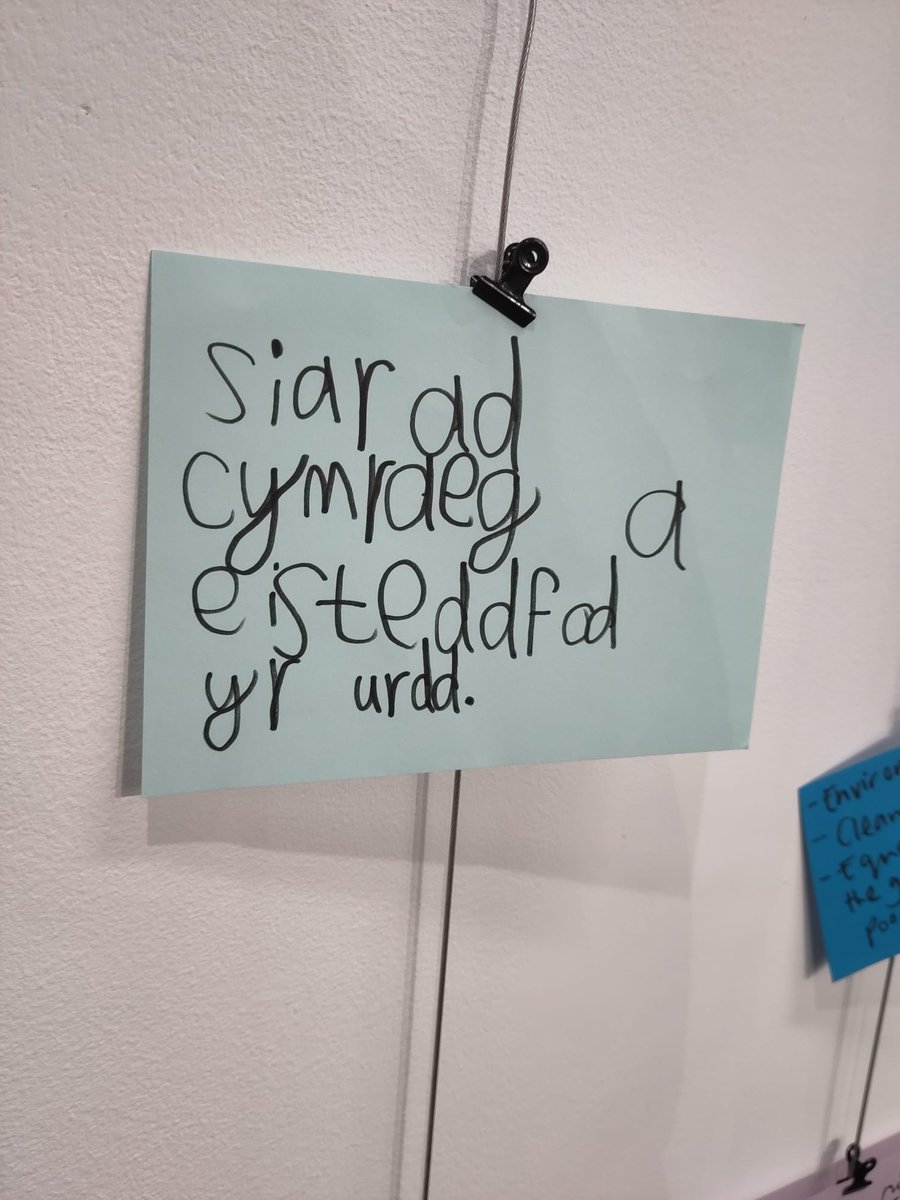 siarad
cymraeg a
eisteddfod
yr urdd.
- Environ
- Clean
- Equa
the g
poo